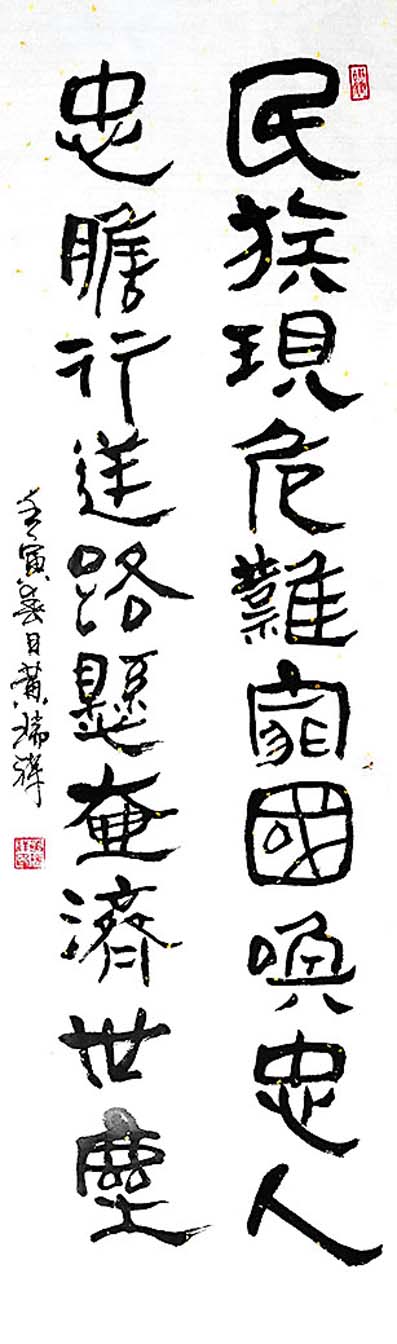 民族現危難家國喚忠人
忠膽行送路懸奄濟世塵
壬寅春日黃瑞祥